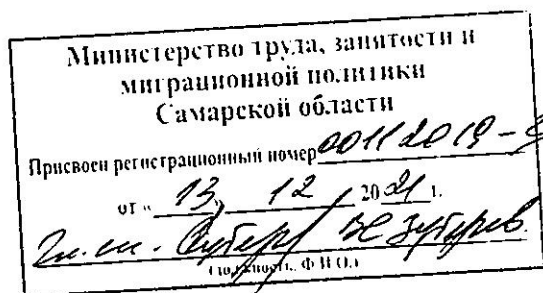 Министерство труда, занятости и
миграционной политики
Самарской области
Присвоен регистрационный номер 00112019-
от « 13 » 12 2021 г.
(должность, Ф.И.О.)